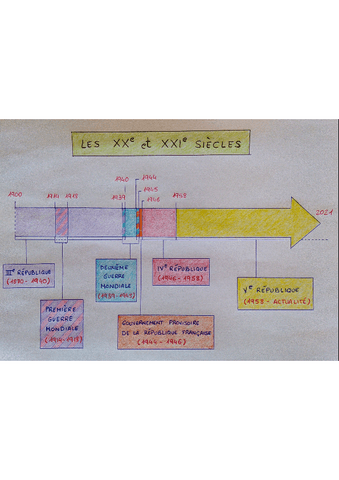 LES XXe et XXIe SIÈCLES
1900
1914
1918
1939
1940
1944
1945
1946
1958
2021
IIIe RÉPUBLIQUE
(1870 - 1940)
PREMIÈRE
GUERRE
MONDIALE
(1914 - 1918)
DEUXIÈME
GUERRE
MONDIALE
(1939 - 1945)
GOUVERNEMENT PROVISOIRE
DE LA RÉPUBLIQUE FRANÇAISE
(1944 - 1946)
IVe RÉPUBLIQUE
(1946 - 1958)
Ve RÉPUBLIQUE
(1958 - ACTUALITÉ)